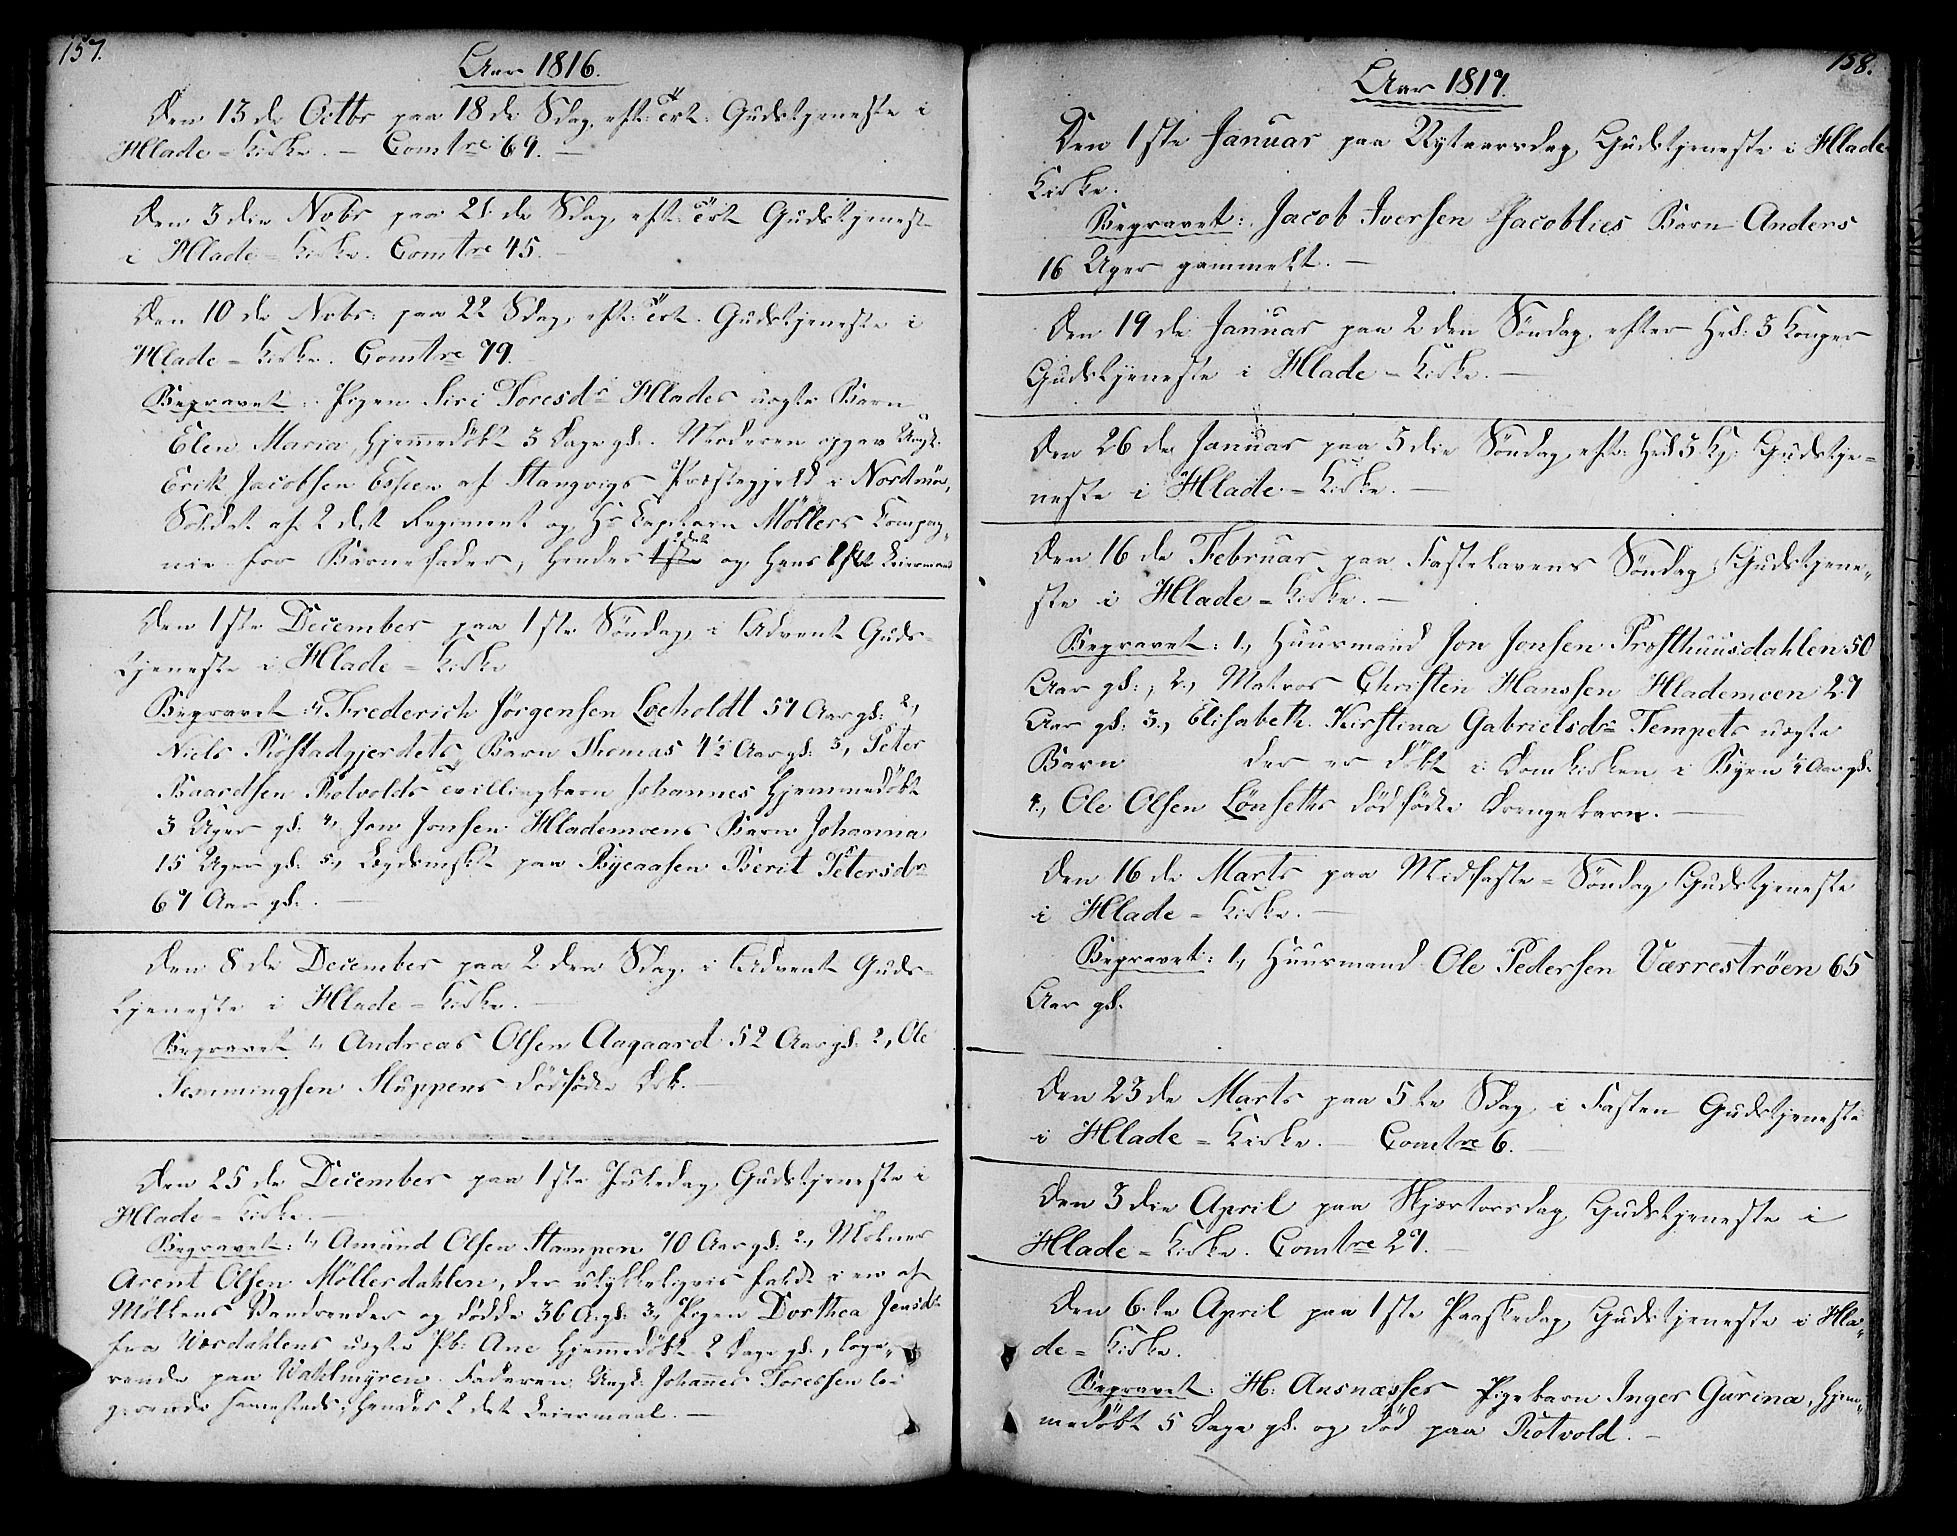 157.
Aar 1816.
Den 13de Octbr paa 18de Sdag eft: Trt: Gudstjeneste i
Hlade-Kirke. – Comtre 69. –
Den 3die Nvbr paa 21de Sdag eft: Trt Gudstjenest
i Hlade-Kirke. Comtre 45. –
Den 10de Nvbr: paa 22 Sdag eft: Trt. Gudstjeneste i
Hlade-Kirke. Comtre 79.
Begravet: Pigen Siri Toresdr Hlades uægte Barn
Elen Maria, hjemmedöbt 3 Dage gl:. Moderen opgav Ungk:
Erik Jacobsen Essen af Stangvigs Præstegjeld i Nordmör,
Soldat af 2det Regiment og Hr Capitain Möllers Compag„
nie for Barnefader, hendes 2det og hans 1ste Leiermaal
Den 1ste December paa 1ste Söndag i Advent Guds-
tjeneste i Hlade-Kirke
Begravet: 1, Frederich Jörgensen Loeholdt 57 Aar gl: 2,
Niels Röstadgjerdets Barn Thomas 4½ Aar gl: 3, Peter
Baardsen Rotvolds Tvillingbarn Johannes hjemmedöbt
3 Uger gl: 4, Jon Jonsen Hlademoens Barn Johanna
15 Uger gl: 5, Lægdsmskt paa Byeaasen Berit Petersdr
67 Aar gl:. –
Den 8de December paa 2den Sdag i Advent Guds-
tjeneste i Hlade-Kirke. –
Begravet 1, Andreas Olsen Aagaard 52 Aar gl: 2, Ole
Semmingsen Sluppens dödfödte Drb. –
Den 25de December paa 1ste Juledag Gudstjeneste i
Hlade-Kirke. –
Begravet: 1, Amund Olsen Stampen 70 Aar gl: 2, Mölner
Arent Olsen Möllerdahlen, der ulykkeligvis faldt i en af
Möllens Vandrender og dödde 36 A: gl: 3, Pigen Dorthea Jensdr
fra Værdahlens uægte Pb: Ane hjemmedöbt 2 Dage gl:, loge„
rende paa Vahlmyren. Faderen Ungk: Johannes Toressen lo„
gerende sammesteds; hendes 2det Leiermaal. –
158.
Aar 1817.
Den 1ste Januar paa Nytaarsdag Gudstjeneste i Hlade
Kirke.
Begravet: Jacob Iversen Jacoblies Barn Anders
16 Uger gammelt. –
Den 19de Januar paa 2den Söndag efter Hel: 3 Konger
Gudstjeneste i Hlade-Kirke. –
Den 26de Januar paa 3die Söndag eft: Hel 3 Kg: Gudstje-
neste i Hlade-Kirke. –
Den 16de Februar paa Fastelavens Söndag Gudstjene„
ste i Hlade-Kirke. –
Begravet: 1, Huusmand Jon Jonsen Prosthuusdahlen 50
Aar gl:, 2, Matros Christen Hanssen Hlademoen 27
Aar gl: 3, Elisabeth Kirstina Gabrielsdr Tempets uægte
Barn der er döbt i Domkirken i Byen ¼ Aar gl:
4, Ole Olsen Lönseths dödfödte Drengebarn. –
Den 16de Marts paa Midfaste-Söndag Gudstjeneste
i Hlade-Kirke. –
Begravet: 1, Huusmand Ole Pedersen Værreströen 65
Aar gl:
Den 23de Marts paa 5te Sdag i Fasten Gudstjeneste
i Hlade-Kirke. – Comtre 6. –
Den 3die April paa Skjærtorsdag Gudstjeneste i
Hlade-Kirke. Comtre 27. –
Den 6te April paa 1ste Paaskedag Gudstjeneste i Hla„
de-Kirke.
Begravet: H: Ausnæsses Pigebarn Inger Gurina, hjem„
medöbt 5 Dage gl: og död paa Rotvold. –